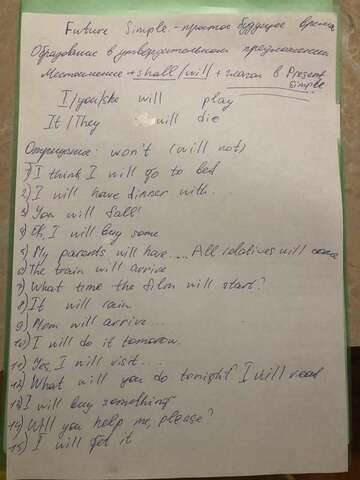 Future Simple - простое будущее время
Образование в утвердительном предложении
Местоимение + shall/will + глагол в Present Simple
I/you/she will play
It/They will die
Отрицание: won't (will not)
1) I think I will go to bed
2) I will have dinner with.
3) You will fall!
4) I will buy some
5) My parents will have.... All relatives will
6) The train will arrive
7) What time the film will start?
8) It will rain
9) Mom will arrive...
10) I will do it tomorrow.
11) Yes, I will visit....
12) What will you do tonight? I will read
13) I will buy something
14) Will you help me, please?
15) I will get it